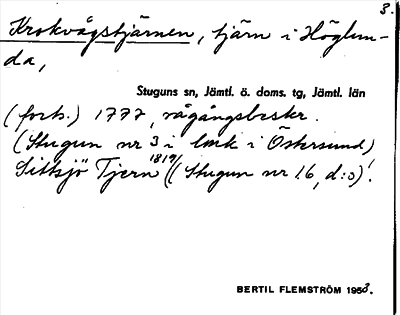 3.
Krokvågstjärnen, tjärn i Höglun-
da,
Stuguns sn, Jämtl. ö. doms. tg, Jämtl. län
(forts.) 1777, rågångsbeskr.
(Stugun nr 3 i lmk i Östersund)
Sittsjö Tjern 1819/ (Stugun nr 16, d:o).
BERTIL FLEMSTRÖM 1953.